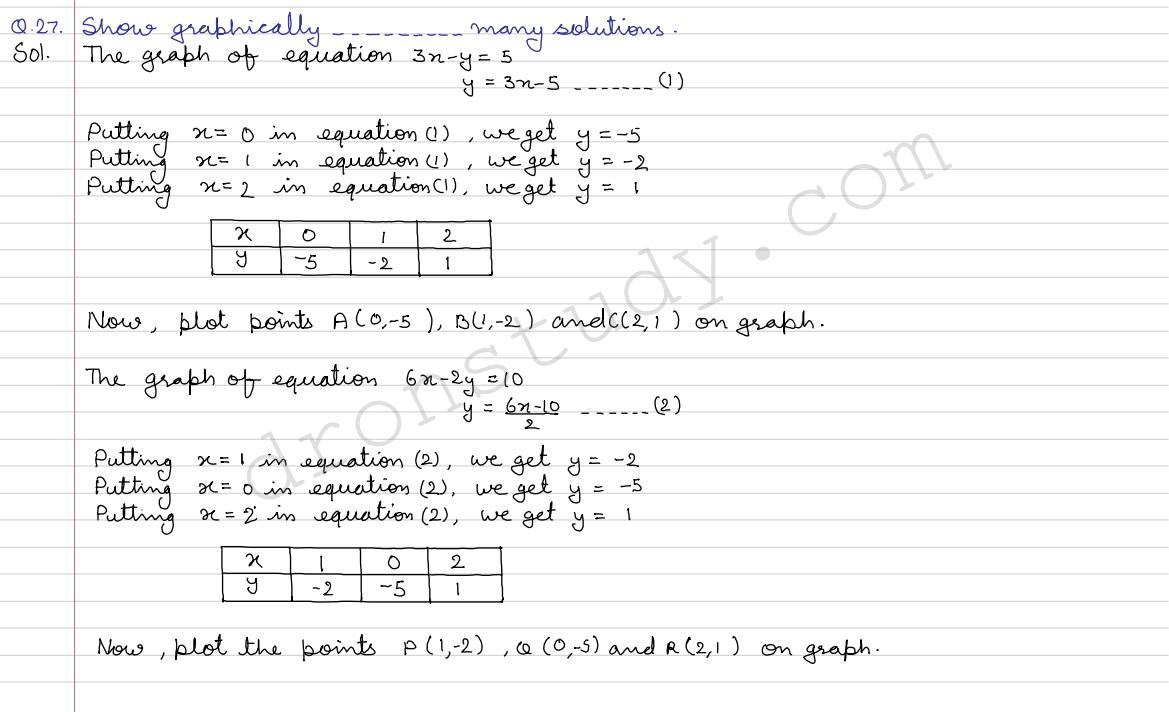 Q.27. Show graphically ---------- many solutions.
Sol. The graph of equation 3x-y = 5
y = 3x-5 ------- (1)
Putting x = 0 in equation (1), we get y = -5
Putting x = 1 in equation (1), we get y = -2
Putting x = 2 in equation (1), we get y = 1
x 0 1 2
y -5 -2 1
Now, plot points A(0,-5), B(1,-2) and C(2,1) on graph.
The graph of equation 6x-2y = 10
y = 6x-10/2 ------ (2)
Putting x = 1 in equation (2), we get y = -2
Putting x = 0 in equation (2), we get y = -5
Putting x = 2 in equation (2), we get y = 1
x 1 0 2
y -2 -5 1
Now, plot the points P(1,-2), Q(0,-5) and R(2,1) on graph.
dronstudy.com